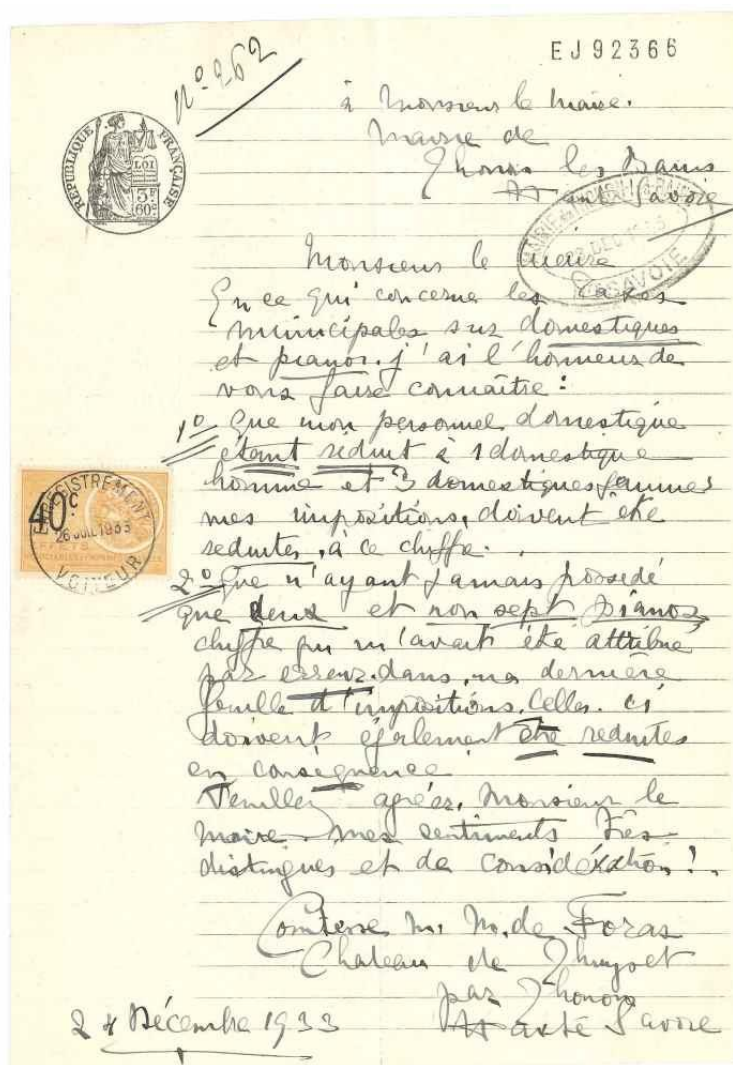 EJ92366
N° 262
à Monsieur le Maire.
Mairie de
Thonon les Bains
Haute Savoie
RÉPUBLIQUE FRANÇAISE
LOI
3F
60c
DEC 1933
SAVOIE
Monsieur le Maire
En ce qui concerne les taxes
municipales sur domestiques
et pianos. j'ai l'honneur de
vous faire connaître :
1° Que mon personnel domestique
étant réduit à 1 domestique
homme et 3 domestiques femmes
mes impositions, doivent être
reduites, à ce chiffre.
2° Que n'ayant jamais possédé
que deux et non sept pianos,
chiffre qui m'avait été attribué
par erreur. dans, ma dernière
feuille d'impositions. Celles. ci
doivent également être reduites
en conséquence
Veuillez agréer, Monsieur le
Maire. mes sentiments très
distingues et de considération !.
ENREGISTREMENT
40c
26 JUIL 1933
VOITEUR
Comtesse M. M. de Foras
Chateau de Thuyset
par Thonon
Haute Savoie
24 Décembre 1933